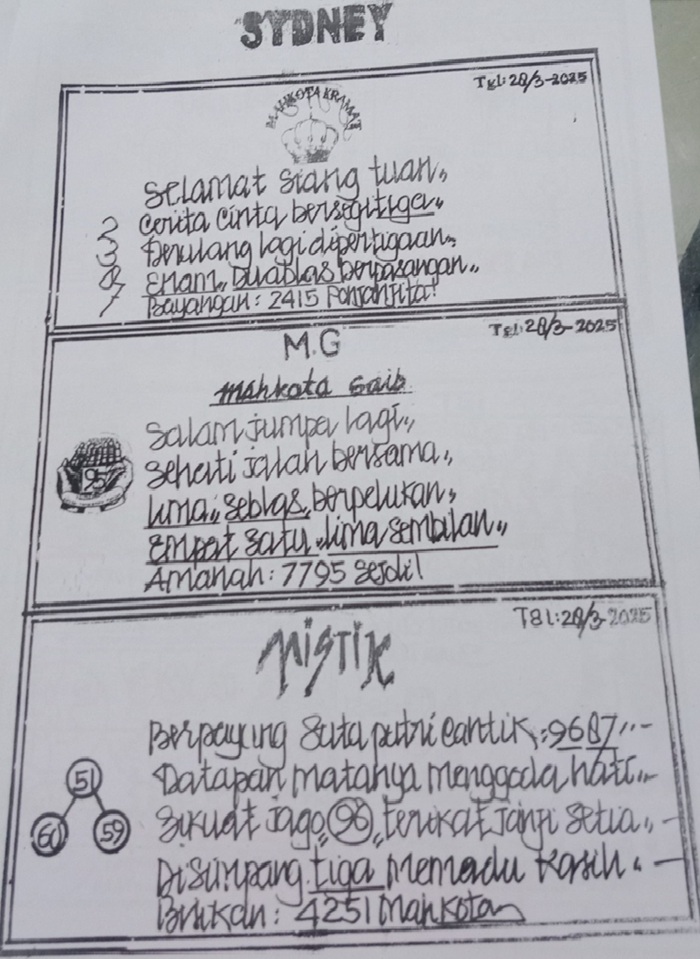 SYDNEY
Tgl: 28/3-2025
MAHKOTA KRAMAT
Selamat siang tuan,,
2 Cerita cinta bersegitiga,,
3 Berulang lagi dipertigaan,,
8 Enam,, Duablas berpasangan,,
7 Bayangan: 2415
Tgl: 28/3-2025
M.G
Mahkota Gaib
Salam jumpa lagi,,
95 Sehati jalan bersama,,
Lima,, Seblas, berpelukan,,
Empat satu,, lima sembilan,,
Amanah: 7795 Sejoli!
Tgl: 28/3-2025
MISTIK
Berpayung Sutra putri cantik,,: 9687,,-
51 Datapan matanya menggoda hati,,-
60 59 Sikuat jago,, 96,, terikat janji setia,,-
Disimpang tiga memadu kasih,,-
Buktikan: 4251 Mahkota